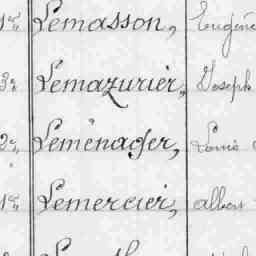 1re Lemasson, Eugène
3e Lemazurier, Joseph
2e Leménager, Louis
1re Lemercier, Albert